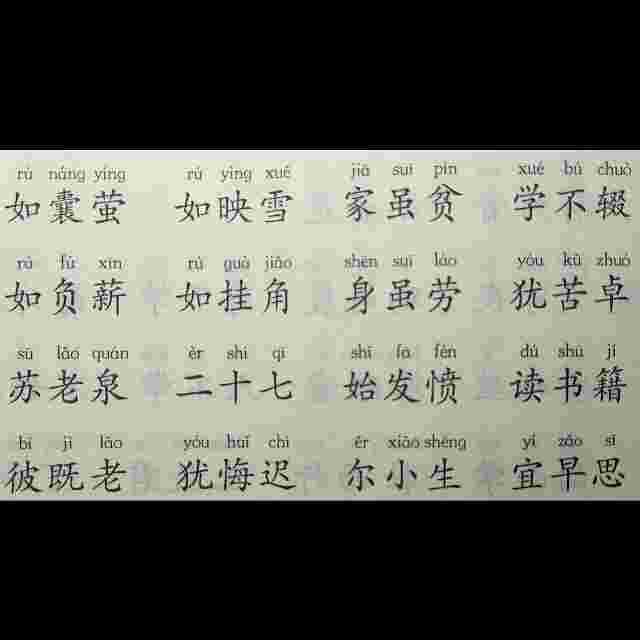 rú náng yíng rú yìng xuě jiā suī pín xué bú chuò
如囊萤 如映雪 家虽贫 学不辍
rú fù xīn rú guà jiǎo shēn suī láo yóu kǔ zhuó
如负薪 如挂角 身虽劳 犹苦卓
sū lǎo quán èr shí qī shǐ fā fèn dú shū jí
苏老泉 二十七 始发愤 读书籍
bǐ jì lǎo yóu huǐ chí ěr xiǎo shēng yí zǎo sī
彼既老 犹悔迟 尔小生 宜早思